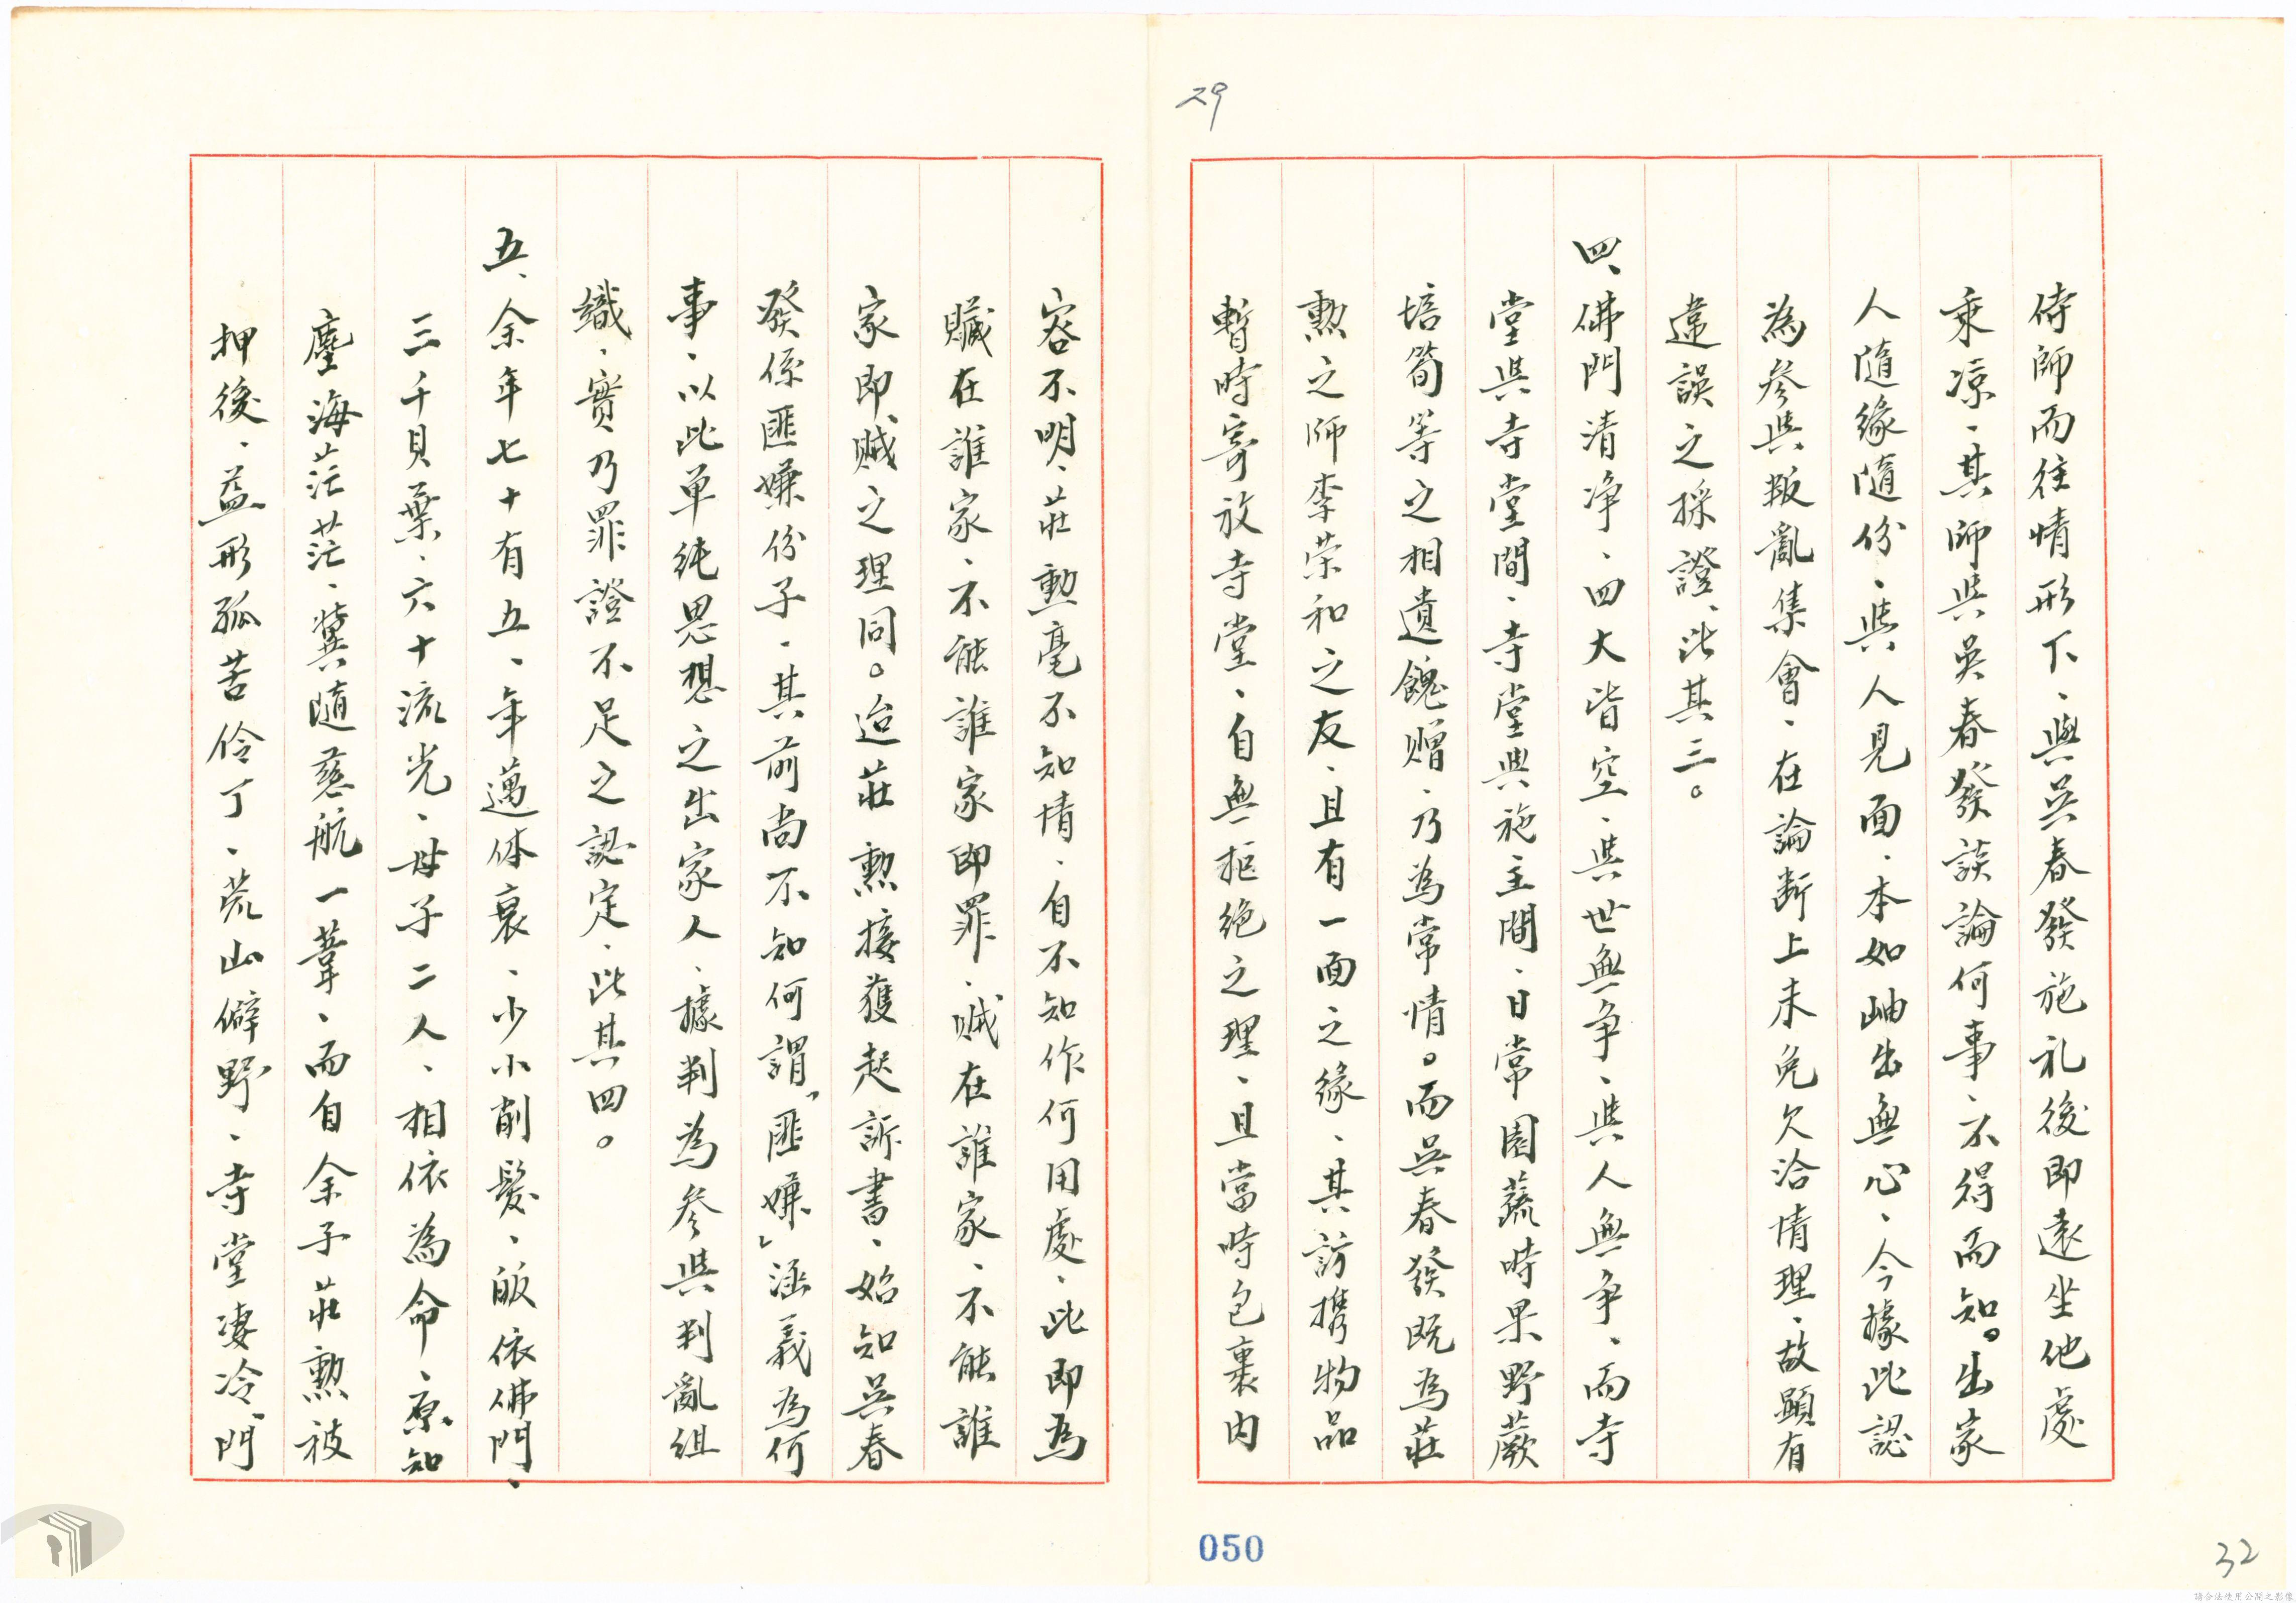 29
侍師而往情形下、與吳春發施礼後即遠坐他處
乘涼、其師與吳春發談論何事、不得而知。出家
人隨緣隨份、與人見面、本如岫出無心、今據此認
為參與叛亂集會、在論断上未免欠洽情理、故顯有
違誤之採證、此其三。
四、佛門清净、四大皆空、與世無争、與人無争、而寺
堂與寺堂間、寺堂與施主間、日常園蔬時果野蕨
培筍等之相遺餽赠、乃為常情。而吳春發既為莊
勲之师李荣和之友、且有一面之緣、其訪携物品
暫時寄放寺堂、自無拒绝之理、且當時包裹内
容不明、莊勲毫不知情、自不知作何用處、此即為
贓在誰家、不能誰家即罪、贼在誰家、不能誰
家即贼之理同。迨莊勲接獲起訴書、始知吳春
發係匪嫌份子、其前尚不知何謂「匪嫌」涵義為何
事、以此单纯思想之出家人、據判為參與判亂组
織、實乃罪證不足之認定、此其四。
五、余年七十有五、年邁体衰、少小削髮、皈依佛門、
三千貝葉、六十流光、母子二人、相依為命、原知
塵海茫茫、冀隨慈航一葦、而自余子莊勲被
押後、益形孤苦伶丁、荒山僻野、寺堂凄冷、門
050
32
請合法使用公開之影像